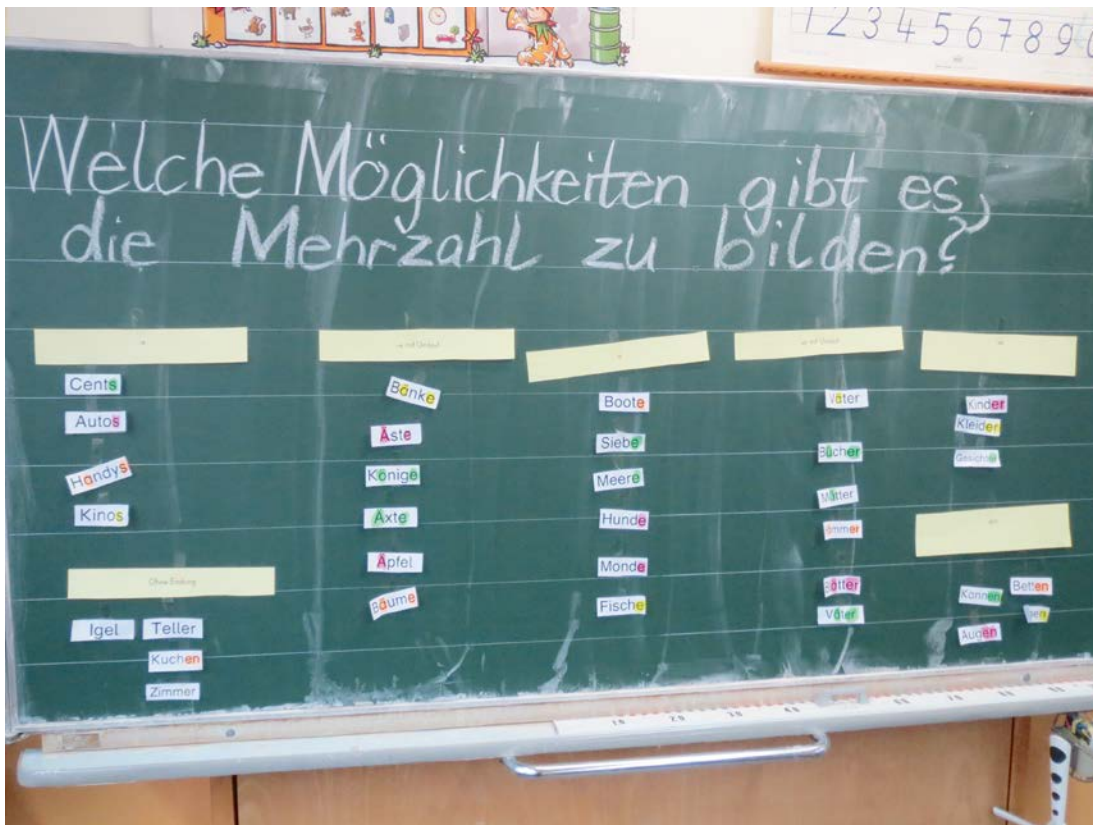 1 2 3 4 5 6 7 8 9 0
Welche Möglichkeiten gibt es,
die Mehrzahl zu bilden?
Cents
Autos
Handys
Kinos
Ohne Endung
Igel Teller
Kuchen
Zimmer
-e mit Umlaut
Bänke
Äste
Könige
Äxte
Äpfel
Bäume
Boote
Siebe
Meere
Hunde
Monde
Fische
Väter
Bücher
Mütter
Väter
Kinder
Kleider
Gesichter
Betten
Kannen
Augen